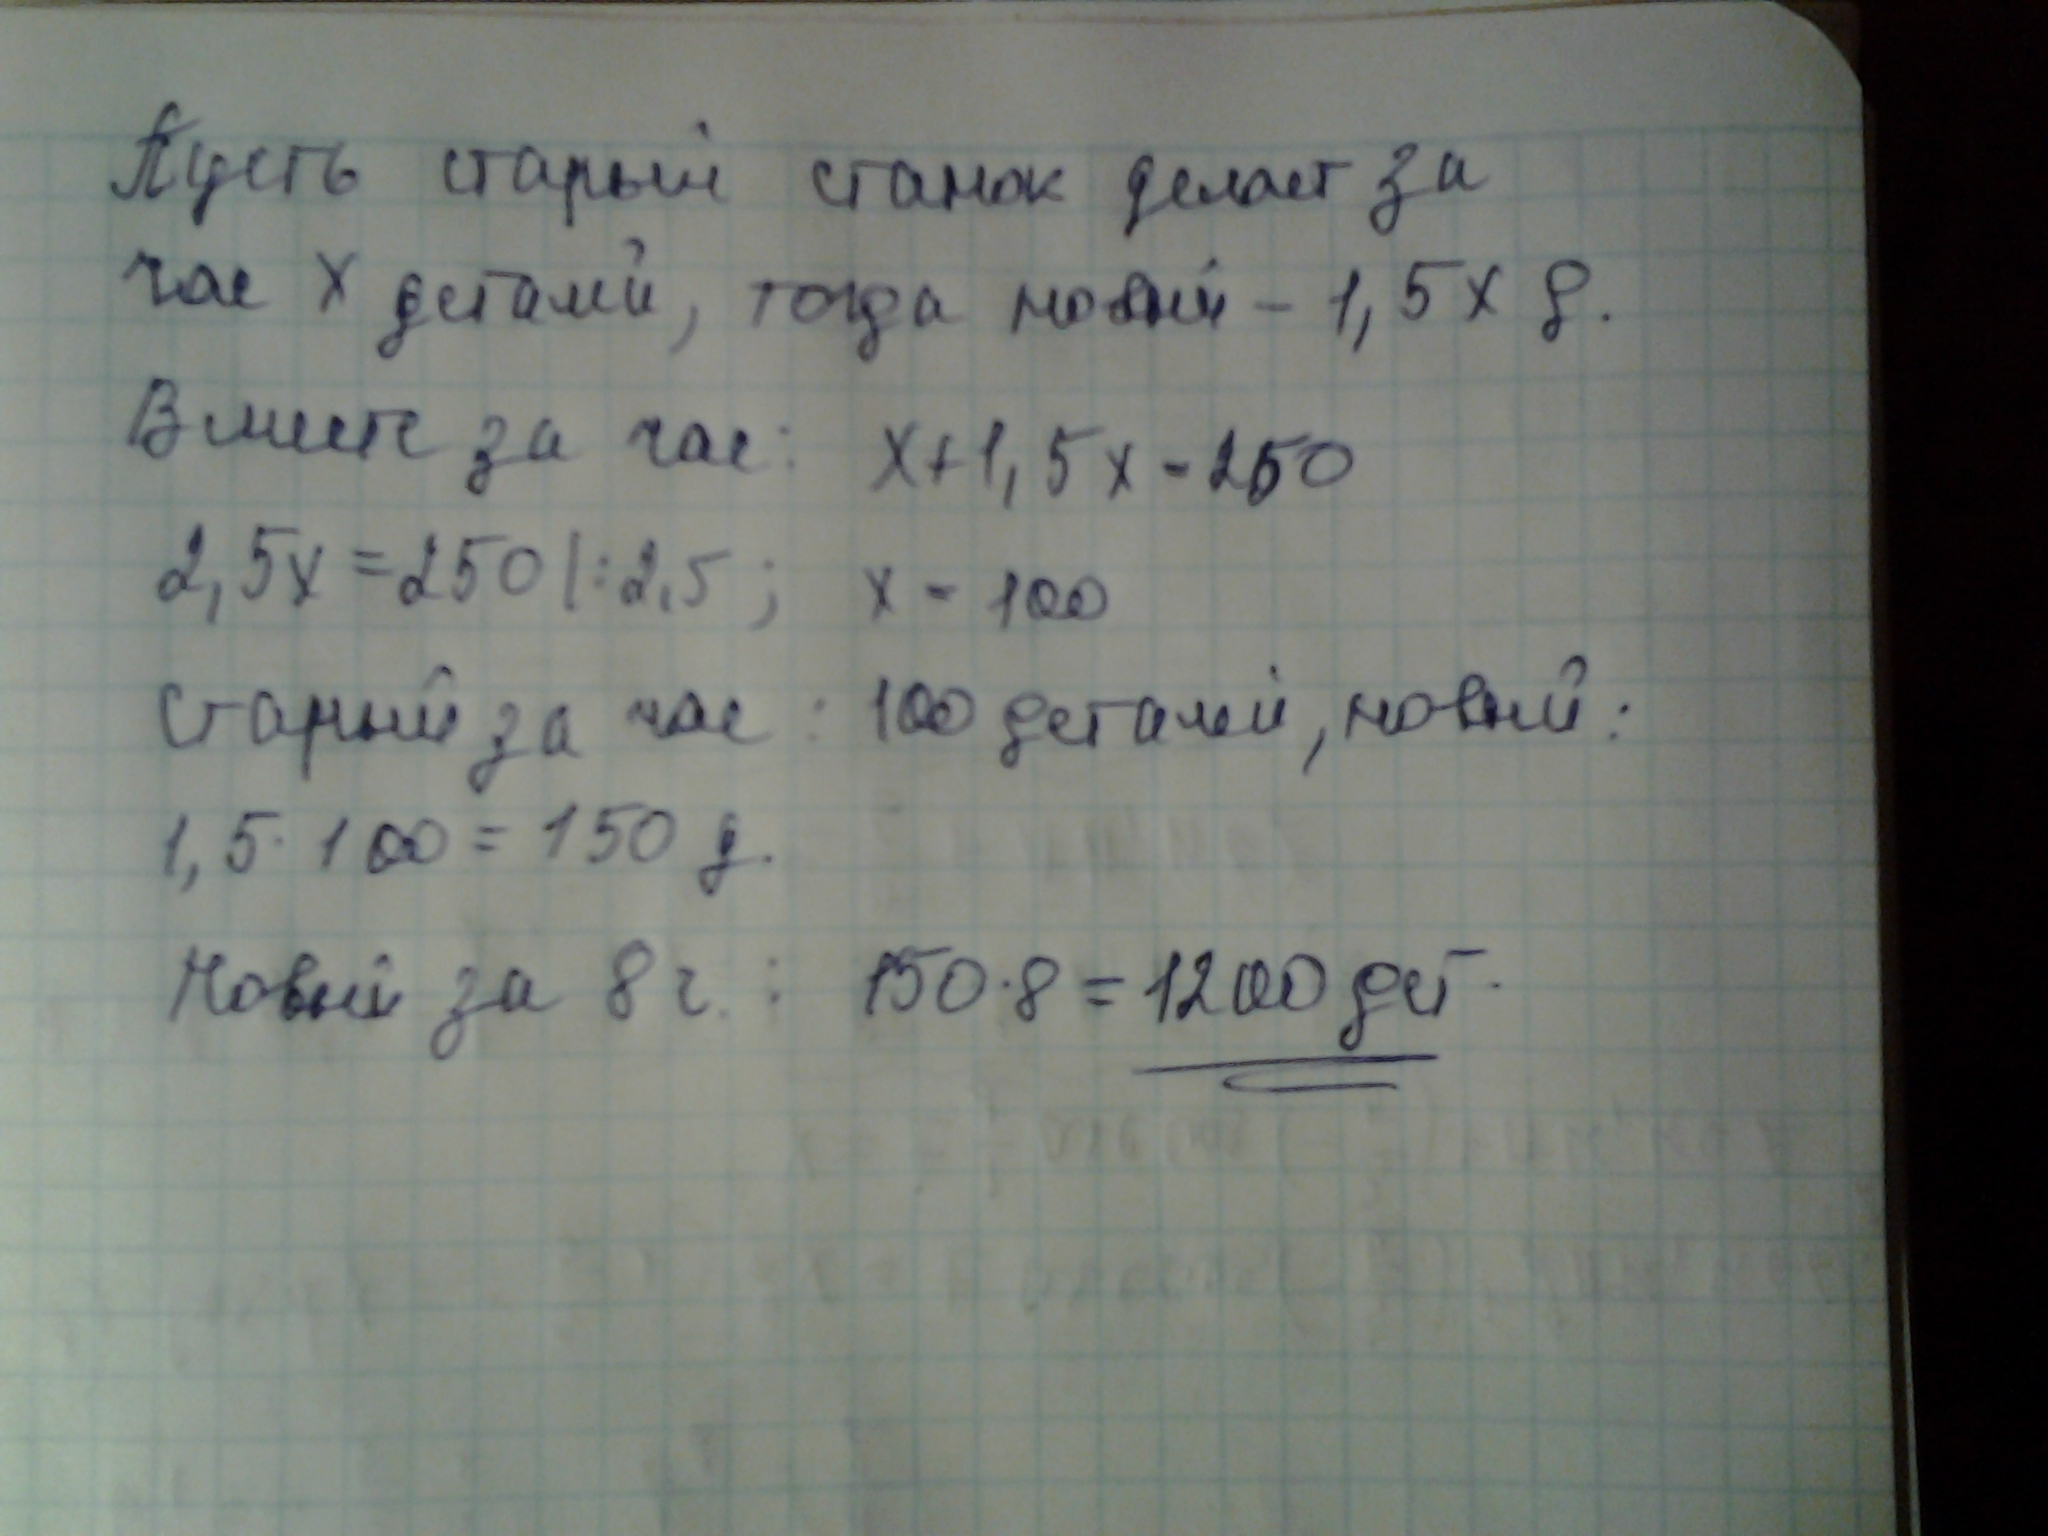 Пусть старый станок делает за
час х деталей, тогда новый – 1,5х д.
Вместе за час: х+1,5х = 250
2,5х = 250 |:2,5; х = 100
Старый за час: 100 деталей, новый:
1,5·100 = 150 д.
Новый за 8 ч.: 150·8 = 1200 дет.